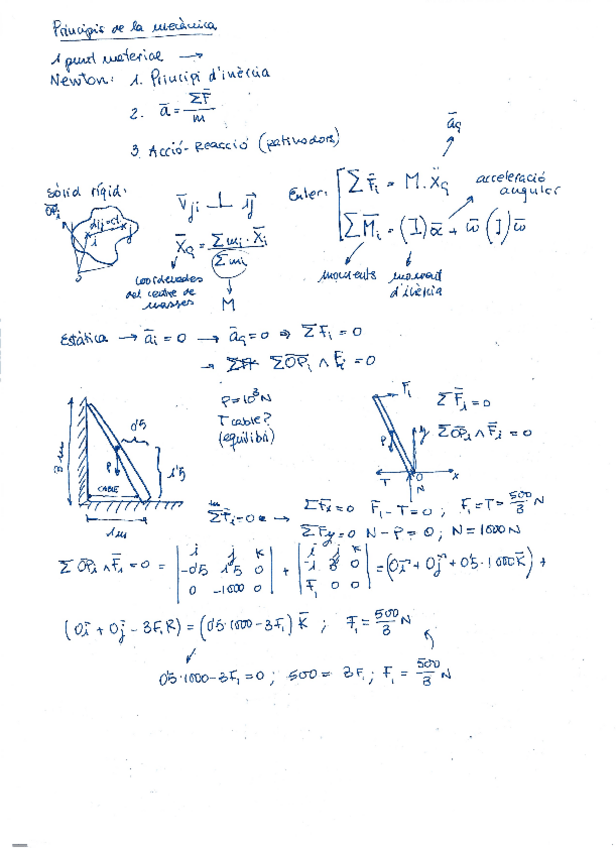 Principis de la mecànica
1 punt material →
Newton: 1. Principi d'inèrcia
2. a̅ = ΣF̅ / m
3. Acció-Reacció (patinadors)
a̅G
Sòlid rígid:
OP̅i
d ij = ct
i j
O
v̅ji ⊥ ij
X̅G = Σmi · X̅i / Σmi
coordenades del centre de masses
M
Euler:
ΣF̅i = M · ẌG
acceleració angular
ΣM̅i = (I)α̅ + ω̅ (I) ω̅
moments
moment d'inèrcia
Estàtica → a̅i = 0 → a̅G = 0 ⇒ ΣFi = 0
→ ΣOP̅i ∧ F̅i = 0
3 m
0'5
P
CABLE
1'5
1 m
P = 10³ N
T cable?
(equilibri)
F1
P
T
O
N
x
y
ΣF̅i = 0
ΣOP̅i ∧ F̅i = 0
ΣF̅i = 0 → ΣFx = 0 F̅1 - T = 0 ; F1 = T = 500/3 N
ΣFy = 0 N - P = 0 ; N = 1000 N
ΣOP̅i ∧ F̅i = 0 = | i j k ; -0'5 1'5 0 ; 0 -1000 0 | + | i j k ; -1 3 0 ; F1 0 0 | = (0i̅ + 0j̅ + 0'5·1000k̅) +
(0i̅ + 0j̅ - 3F1k̅) = (0'5·1000 - 3F1) k̅ ; F1 = 500/3 N
0'5·1000 - 3F1 = 0 ; 500 = 3F1 ; F1 = 500/3 N